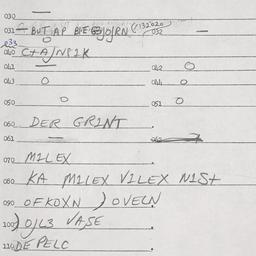 030 —
031 — BUT AP (132020) 032 —
033 O
040 C+A/NP1K
041 — 042 O
043 O 044 O
050 O 051 O
060 DER GR1NT
061 —
070 M1LEX
080 KA M1LEX V1LEX N1S+
090 OFKOXN ) OVELN
100 ) O1L3 VASE
110 DE PELC